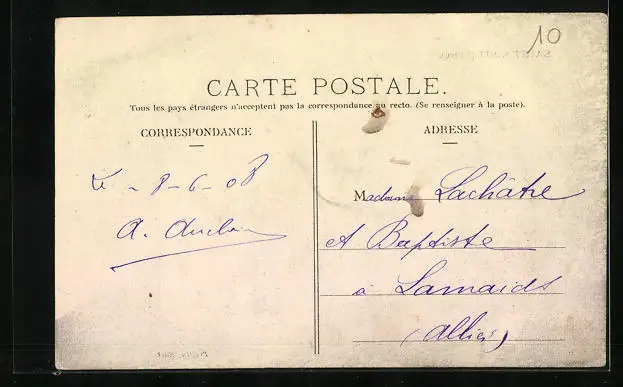 10
CARTE POSTALE.
Tous les pays étrangers n'acceptent pas la correspondance au recto. (Se renseigner à la poste).
CORRESPONDANCE
ADRESSE
Le - 8-6-08
A.
Madame Lachâtre
et Baptiste
à Lamaids
(Allier)